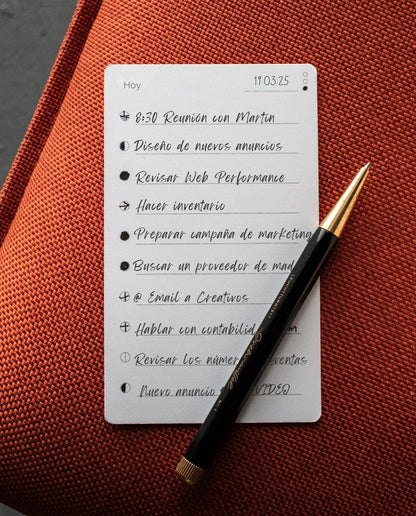 Hoy
19.03.25
8:30 Reunión con Martín
Diseño de nuevos anuncios
Revisar Web Performance
Hacer inventario
Preparar campaña de marketing
Buscar un proveedor de mad
@ Email a Creativos
Hablar con contabilid
Revisar los núme ventas
Nuevo anuncio VIDEO